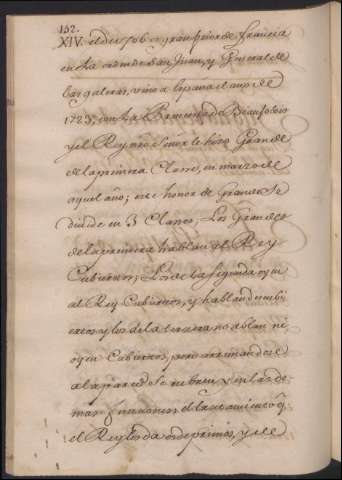 152.
XIV. el de 706 es gran prior de Francia
en La orden de San Juan, y General de
las galeras, vino a españa el año de
1723, con La
y el Rey nro Señor le hizo Grande
de la primera Clase, en marzo de
aquel año; este honor de Grande se
divide en 3 Clases; Los Grandes
de la primera hablan al Rey
Cubiertos; Los de la segunda oyen
al Rey Cubiertos, y hablan descubi
ertos y los de la tercera no ablan ni
oyen Cubiertos, pero arrimandose
a la pared se cubren y en las de
mas funciones el tratamiento q.
el Rey les da es de primos, y el